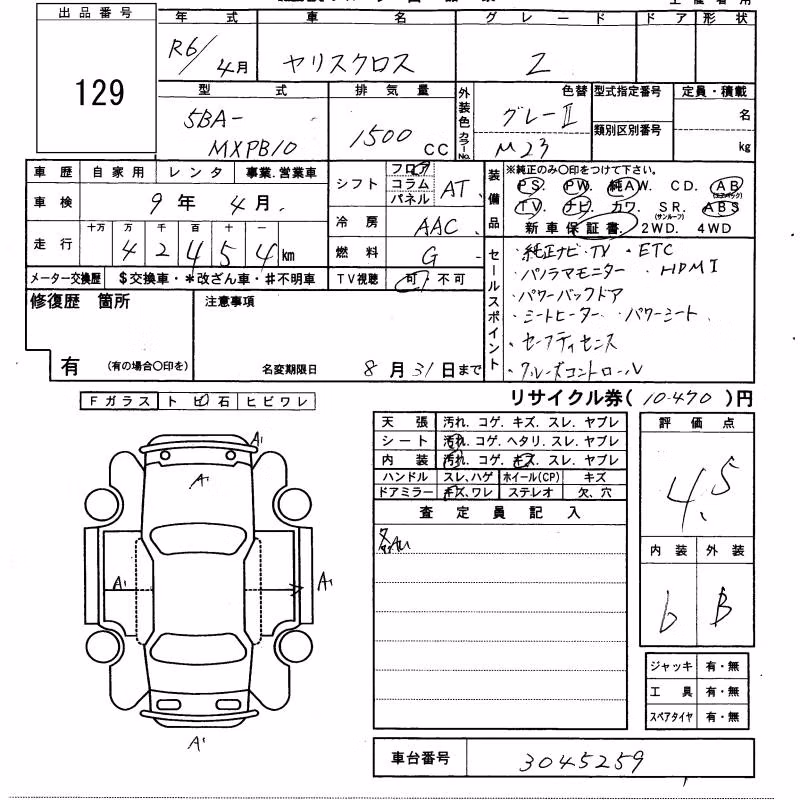 出品番号
129
年 式 車 名 グ レ ー ド ド ア 形 状
R6/4月 ヤリスクロス Z
型 式 排 気 量 外装色 カラーNo. 色替 型式指定番号 定員・積載
5BA-
MXPB10 1500 CC グレーII M23 類別区別番号 名 kg
車 歴 自 家 用 レ ン タ 事業.営業車
車 検 9 年 4 月
走 行 十万 万 千 百 十
4 2 4 5 4 km
メーター交換歴 $交換車・*改ざん車・#不明車
シフト フロア コラム パネル AT
冷 房 AAC
燃 料 G
TV視聴 可・不可
装備品 ※純正のみ〇印をつけて下さい。
PS. PW. 純AW. CD. AB (エアバック)
TV. ナビ. カワ. SR. (サンルーフ) ABS
新車保証書. 2WD. 4WD
セールスポイント
・純正ナビ・TV ・ETC
・パノラマモニター ・HDMI
・パワーバックドア
・シートヒーター ・パワーシート
・セーフティセンス
・クルーズコントロール
修復歴 箇所 注意事項
有 (有の場合〇印を) 名変期限日 8 月 31 日まで
リサイクル券( 10.470 )円
Fガラス ト ビ 石 ヒビワレ
A1
A
A1
A1
A1
天 張 汚れ. コゲ. キズ. スレ. ヤブレ
シート 汚れ. コゲ. ヘタリ. スレ. ヤブレ
内 装 汚れ. コゲ. キズ. スレ. ヤブレ
ハンドル スレ,ハゲ ホイール(CP) キズ
ドアミラー キズ,ワレ ステレオ 欠、穴
査 定 員 記 入
各AU
評 価 点
4.5
内 装 外 装
b B
ジャッキ 有・無
工 具 有・無
スペアタイヤ 有・無
車台番号 3045259